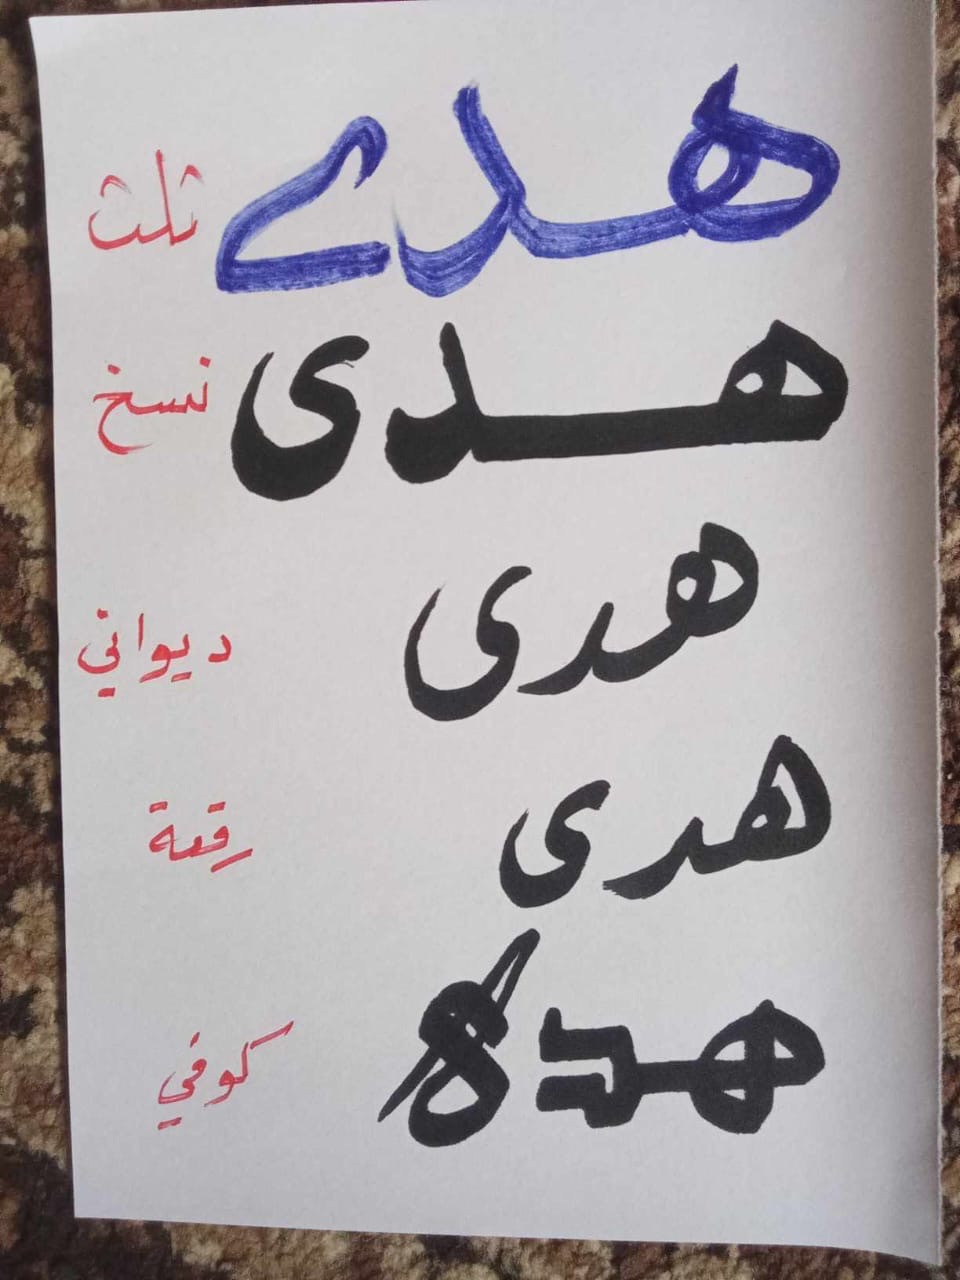 هدے ثلث
هدى نسخ
هدى ديواني
هدى رقعة
هدى كوفي